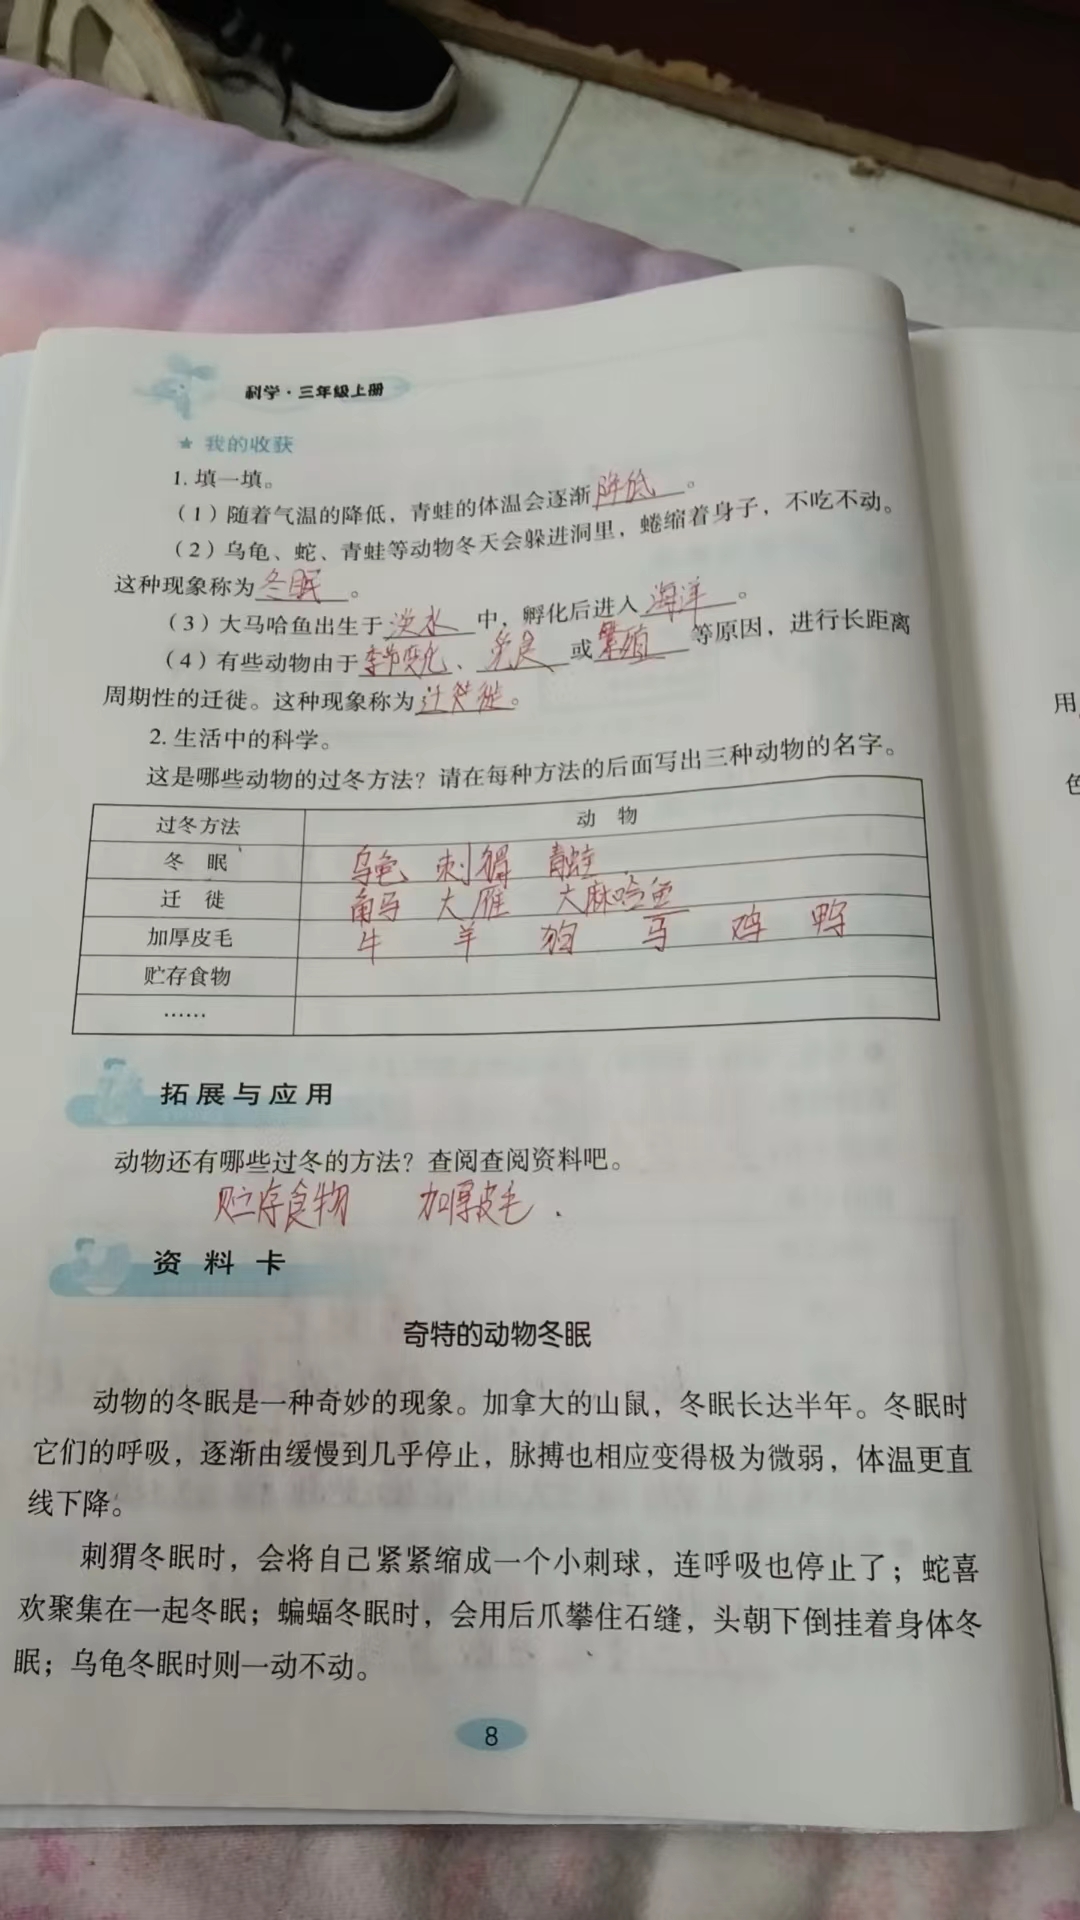 科学·三年级上册
★ 我的收获
1. 填一填。
(1) 随着气温的降低，青蛙的体温会逐渐降低。
(2) 乌龟、蛇、青蛙等动物冬天会躲进洞里，蜷缩着身子，不吃不动。
这种现象称为冬眠。
(3) 大马哈鱼出生于淡水中，孵化后进入海洋。
(4) 有些动物由于季节变化、觅食或繁殖等原因，进行长距离
周期性的迁徙。这种现象称为迁徙。
2. 生活中的科学。
这是哪些动物的过冬方法？请在每种方法的后面写出三种动物的名字。
过冬方法 动 物
冬 眠 乌龟 刺猬 青蛙
迁 徙 角马 大雁 大麻哈鱼
加厚皮毛 牛 羊 狗 马 鸡 鸭
贮存食物
……
拓展与应用
动物还有哪些过冬的方法？查阅查阅资料吧。
贮存食物 加厚皮毛.
资料卡
奇特的动物冬眠
动物的冬眠是一种奇妙的现象。加拿大的山鼠，冬眠长达半年。冬眠时
它们的呼吸，逐渐由缓慢到几乎停止，脉搏也相应变得极为微弱，体温更直
线下降。
刺猬冬眠时，会将自己紧紧缩成一个小刺球，连呼吸也停止了；蛇喜
欢聚集在一起冬眠；蝙蝠冬眠时，会用后爪攀住石缝，头朝下倒挂着身体冬
眠；乌龟冬眠时则一动不动。
8
用
色